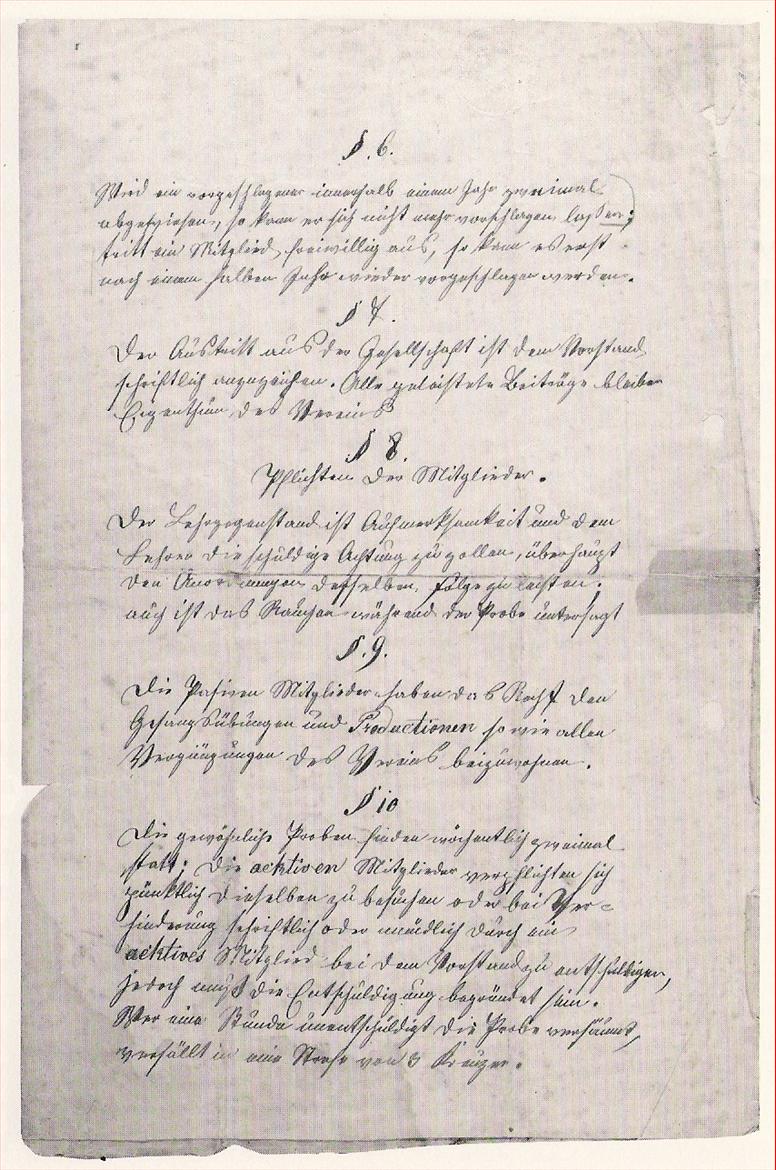 §. 6.
Wird ein vorgeschlagener innerhalb einem Jahr zweimal
abgewiesen, so kann er sich nicht mehr vorschlagen lassen;
tritt ein Mitglied freiwillig aus, so kann es erst
nach einem halben Jahr wieder vorgeschlagen werden.
§ 7.
Der Austritt aus der Gesellschaft ist dem Vorstand
schriftlich anzuzeichen. Alle geleistete Beiträge bleiben
Eigenthum des Vereins
§ 8.
Pflichten der Mitglieder.
Der Lehrgegenstand ist Aufmerksamkeit und dem
Lehrer die schuldige Achtung zu zollen, überhaupt
den Anordnungen desselben, Folge zu leisten.
auch ist das Rauchen während der Probe untersagt
§. 9.
Die Pasiven Mitglieder haben das Recht den
Gesangsübungen und Productionen so wie allen
Vergnügungen des Vereins beizuwohnen.
§ 10
Die gewöhnliche Proben finden wöchentlich zweimal
statt; Die acktiven Mitglieder verpflichten sich
pünktlich dieselben zu besuchen oder bei Ver=
hinderung schriftlich oder mündlich durch ein
acktives Mitglied bei dem Vorstand zu entschuldigen,
jedoch muß die Entschuldigung begründet sein.
Wer eine Stunde unentschuldigt die Probe versäumt,
verfällt in eine Strafe von 3 Kreuzer.